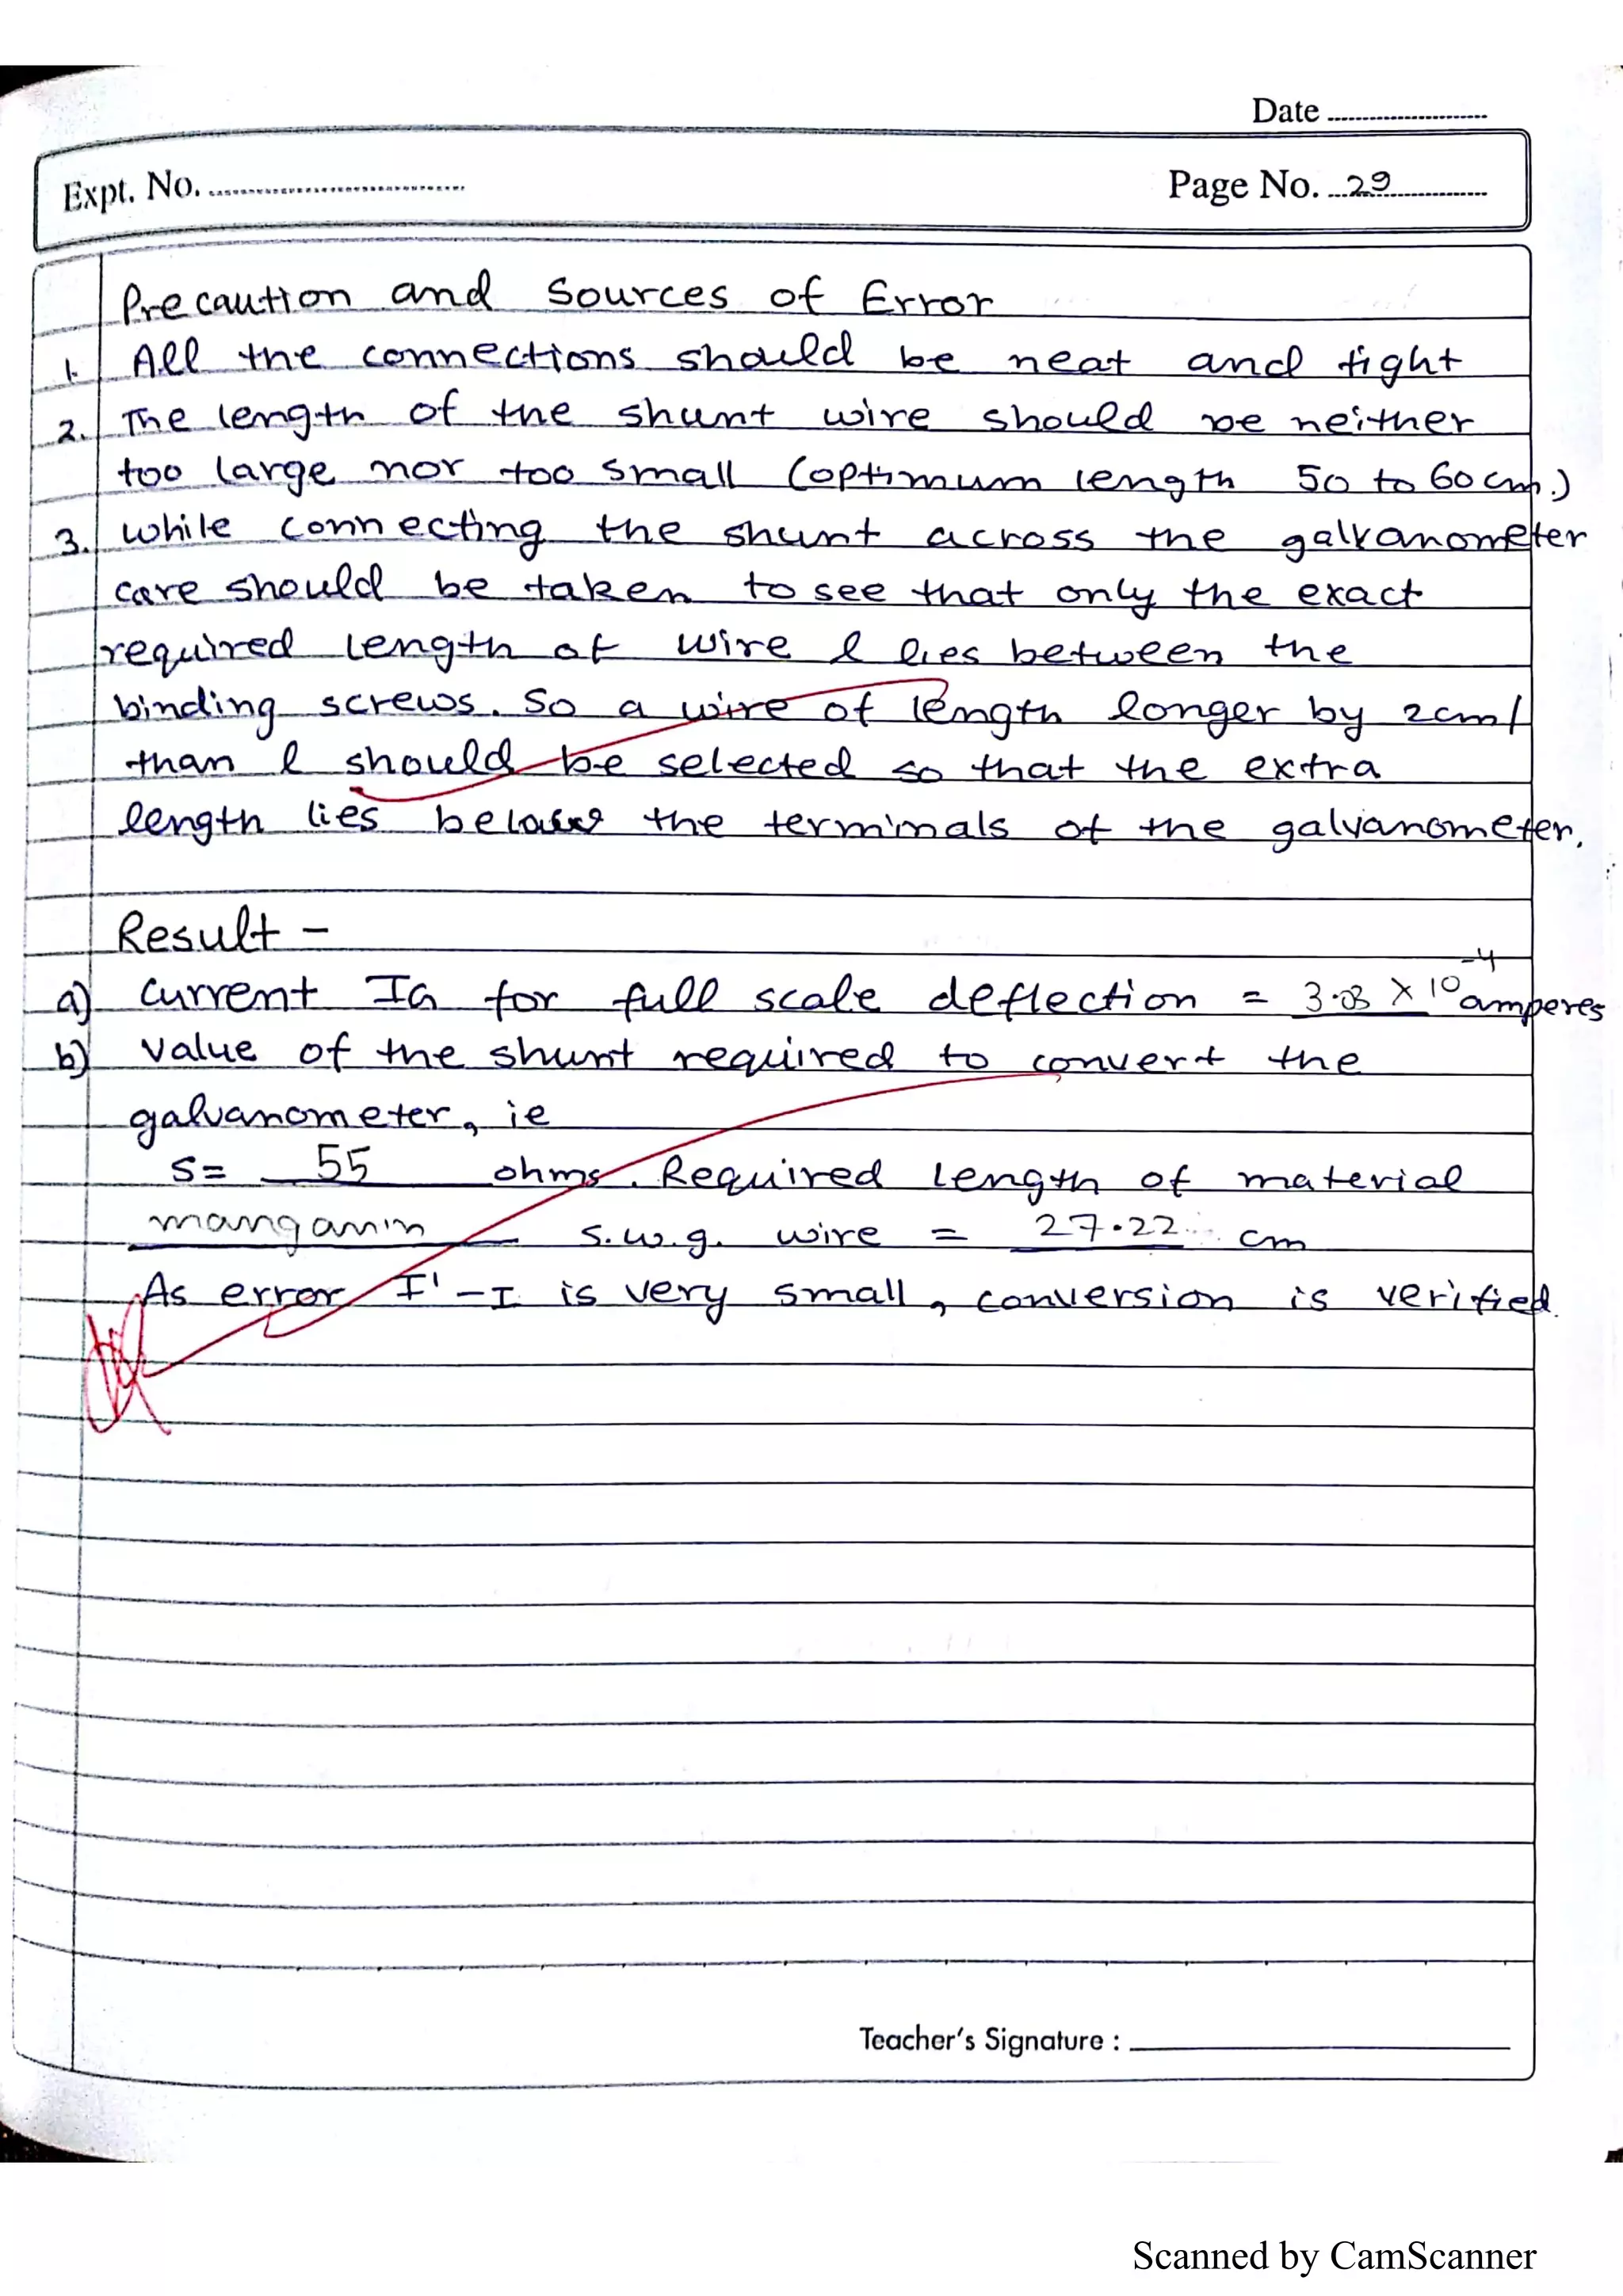 Date
Expt. No.
Page No. 29
Precaution and Sources of Error
1. All the connections should be neat and tight
2. The length of the shunt wire should be neither
too large nor too small (optimum length 50 to 60 cm.)
3. while connecting the shunt across the galvanometer
care should be taken to see that only the exact
required length of wire l lies between the
binding screws. So a wire of length longer by 2cm
than l should be selected so that the extra
length lies below the terminals of the galvanometer.
Result -
a) Current IG for full scale deflection = 3.03 × 10⁻⁴ amperes
b) Value of the shunt required to convert the
galvanometer, ie
S = 55 ohms. Required length of material
manganin s.w.g. wire = 27.22 cm
As error I' - I is very small, conversion is verified.
Teacher's Signature :
Scanned by CamScanner